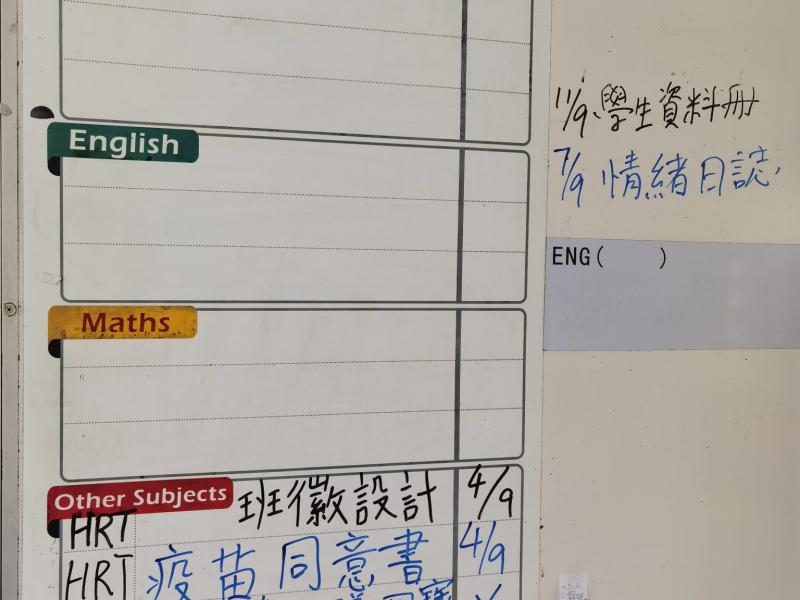 English
Maths
Other Subjects
HRT 班徽設計 4/9
HRT 疫苗同意書 4/9
11/9、學生資料冊
7/9 情緒日誌,
ENG( )